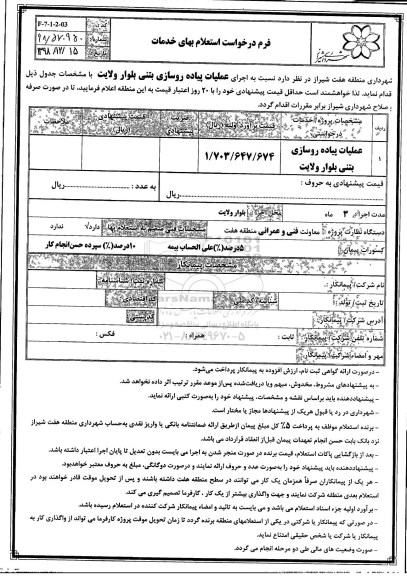 F-7-1-2-03
فرم درخواست استعلام بهای خدمات
۱۳۹۸/۱۲/۱۵
شهرداری منطقه هفت شیراز در نظر دارد نسبت به اجرای عملیات پیاده روسازی بتنی بلوار ولایت با مشخصات جدول ذیل
اقدام نماید. لذا خواهشمند است حداقل قیمت پیشنهادی خود را با ۲۰ روز اعتبار قیمت به این منطقه اعلام فرمایید، تا در صورت صرفه
و صلاح شهرداری شیراز برابر مقررات اقدام گردد.
ردیف مشخصات پروژه/خدمات درخواستی قیمت برآورد اولیه (ریال) ضریب پیشنهادی قیمت پیشنهادی (ریال) ملاحظات
۱ عملیات پیاده روسازی بتنی بلوار ولایت ۱/۷۰۳/۶۴۷/۶۷۴
قیمت پیشنهادی به حروف : ریال به عدد : ریال
مدت اجرا: ۳ ماه محل اجرا: بلوار ولایت
دستگاه نظارت پروژه: معاونت فنی و عمرانی منطقه هفت دارد/ ندارد
کسورات پیمان: ۵درصد(٪)علی الحساب بیمه ۱۰درصد(٪) سپرده حسن انجام کار
مشخصات پیمانکار
نام شرکت/ پیمانکار : شماره ثبت/ شناسنامه:
تاریخ ثبت/ تولد : شناسه/ کد ملی: کد اقتصادی:
آدرس شرکت/ پیمانکار: کد پستی:
شماره تلفن شرکت/ پیمانکار: ثابت : همراه : فکس :
مهر و امضاء شرکت/ پیمانکار:
- درصورت ارائه گواهی ثبت نام، ارزش افزوده به پیمانکار پرداخت می‌شود.
- به پیشنهادهای مشروط، مخدوش، مبهم ویا دریافت‌شده پس‌از موعد مقرر ترتیب اثر داده نخواهد شد.
- پیشنهاددهنده باید براساس نقشه و مشخصات، پیشنهاد خود را به‌صورت کتبی ارائه نماید.
- شهرداری در رد یا قبول هریک از پیشنهادها مجاز یا مختار است.
- برنده استعلام موظف به پرداخت ۵٪ کل مبلغ پیمان ازطریق ارائه ضمانتنامه بانکی یا واریز نقدی به‌حساب شهرداری منطقه هفت شیراز
نزد بانک بابت حسن انجام تعهدات پیمان قبل‌از انعقاد قرارداد می باشد.
- بعد از بازگشایی پاکات استعلام، قیمت برنده در صورت منجر شدن به اجرا می بایست بدون تعدیل تا پایان اجرا اعتبار داشته باشد.
- پیشنهاددهنده باید پیشنهاد خود را به‌صورت عدد و حروف ارائه نمایند و درصورت دوگانگی، مبلغ به حروف معتبر خواهدبود.
- هر یک از پیمانکاران صرفاً همزمان یک کار می توانند در سطح منطقه هفت داشته باشند و پس از تحویل موقت قادر خواهند بود در
استعلام بعدی منطقه شرکت نمایند و جهت واگذاری بیشتر از یک کار ، کارفرما تصمیم گیری می کند.
- برآورد اولیه جزء اسناد استعلام می باشد و می بایست به تائید و امضاء پیمانکار شرکت کننده در استعلام رسیده باشد.
- در صورتی که پیمانکار یا شرکتی در یکی از استعلامهای منطقه برنده گردد تا زمان تحویل موقت پروژه کارفرما می تواند از واگذاری کار به
پیمانکار یا شرکت یا شخص حقیقی امتناع نماید.
- صورت وضعیت های مالی طی دو مرحله انجام می گردد.